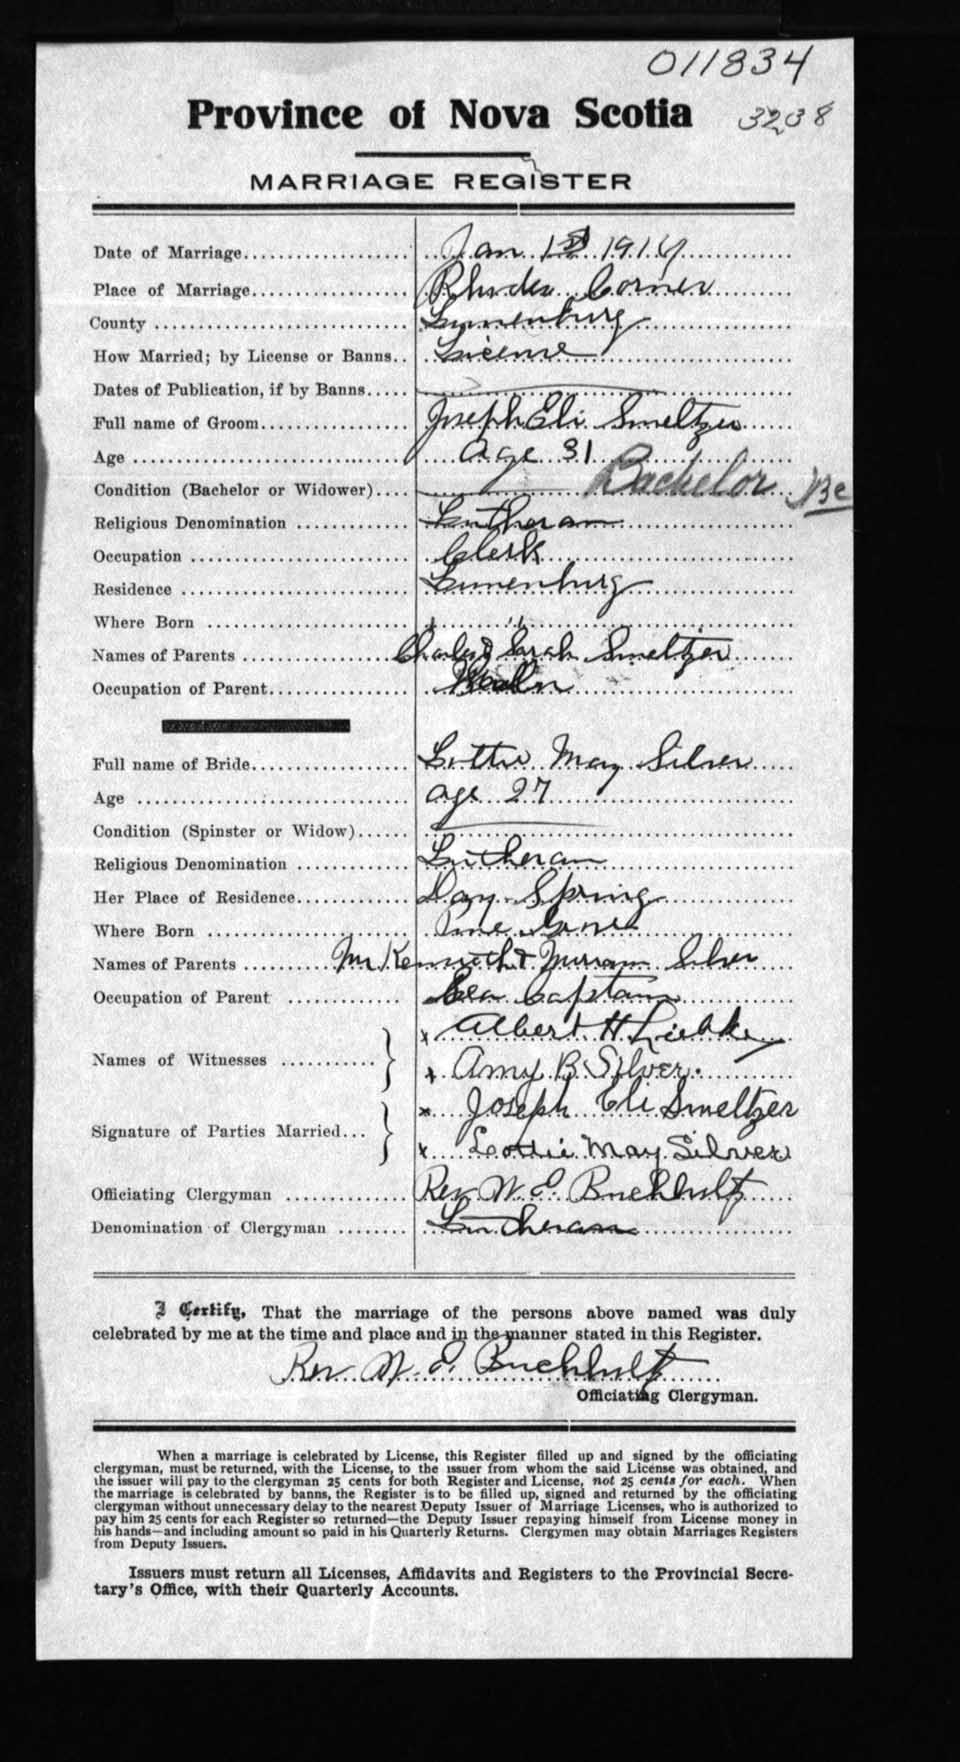 011834
Province of Nova Scotia 3238
MARRIAGE REGISTER
Date of Marriage Jan 1st 1914
Place of Marriage Rhodes Corner
County Lunenburg
How Married; by License or Banns License
Dates of Publication, if by Banns
Full name of Groom Joseph Eli Smeltzer
Age Age 31
Condition (Bachelor or Widower) Bachelor Bc
Religious Denomination Lutheran
Occupation Clerk
Residence Lunenburg
Where Born " "
Names of Parents Charles & Sarah Smeltzer
Occupation of Parent
Full name of Bride Lottie May Silver
Age age 27
Condition (Spinster or Widow)
Religious Denomination Lutheran
Her Place of Residence Day Spring
Where Born Pine Grove
Names of Parents Mr Kenneth & Miriam Silver
Occupation of Parent Sea Captain
x Albert H
Names of Witnesses
x Amy B Silver.
x Joseph Eli Smeltzer
Signature of Parties Married
x Lottie May Silver
Officiating Clergyman Rev W. E. Buchholtz
Denomination of Clergyman Lutheran
I Certify, That the marriage of the persons above named was duly
celebrated by me at the time and place and in the manner stated in this Register.
Rev W. E. Buchholtz
Officiating Clergyman.
When a marriage is celebrated by License, this Register filled up and signed by the officiating
clergyman, must be returned, with the License, to the issuer from whom the said License was obtained, and
the issuer will pay to the clergyman 25 cents for both Register and License, not 25 cents for each. When
the marriage is celebrated by banns, the Register is to be filled up, signed and returned by the officiating
clergyman without unnecessary delay to the nearest Deputy Issuer of Marriage Licenses, who is authorized to
pay him 25 cents for each Register so returned—the Deputy Issuer repaying himself from License money in
his hands—and including amount so paid in his Quarterly Returns. Clergymen may obtain Marriages Registers
from Deputy Issuers.
Issuers must return all Licenses, Affidavits and Registers to the Provincial Secre-
tary's Office, with their Quarterly Accounts.